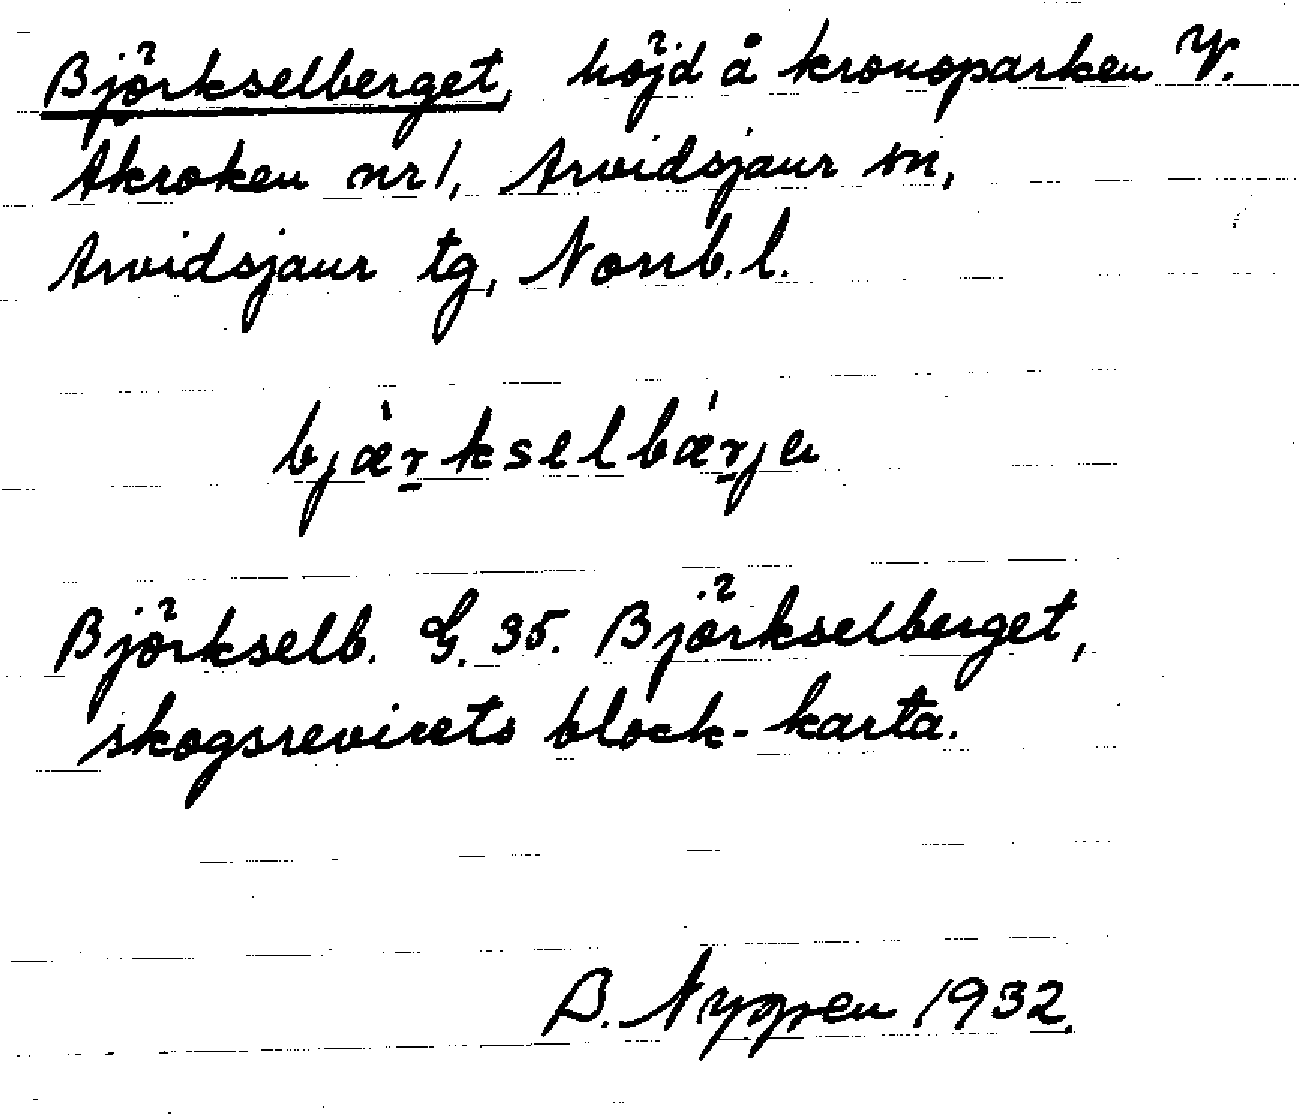 Björkselberget, höjd å kronoparken V.
Akroken nr 1, Arvidsjaur sn,
Arvidsjaur tg, Norrb. l.
bjæ̀rkselbǽrje
Björkselb. G. 35. Björkselberget,
skogsrevirets block-karta.
B. Nygren 1932.